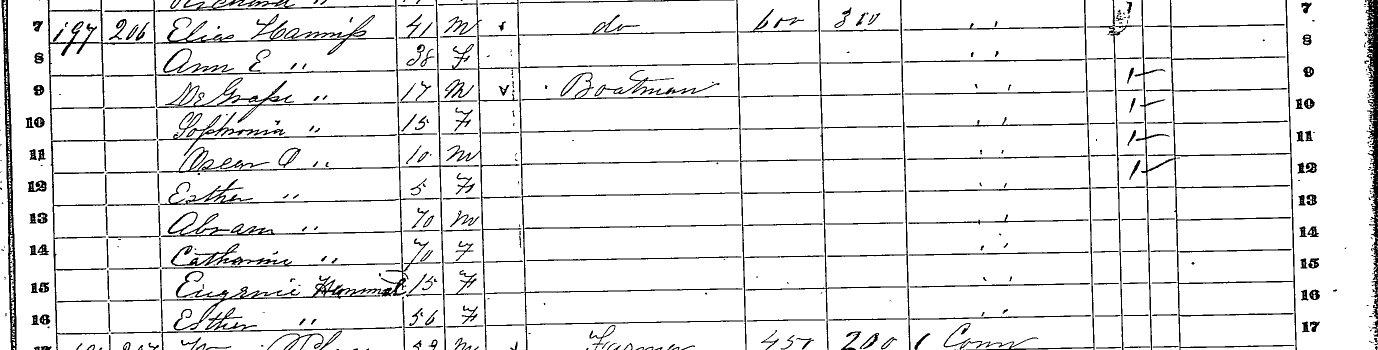 7 197 206 Elias Hanniss 41 M do 600 7
8 Ann E " 38 F " 8
9 DeGrasse " 17 M v Boatman " 1 9
10 Sophronia " 15 F " 1 10
11 Oscar O " 10 M " 1 11
12 Esther " 5 F " 1 12
13 Abram " 70 M "
14 Catharine " 70 F " 14
15 Eugenie 15 F " 15
16 Esther " 56 F " 16
M Farmer 450 200 Conn 17